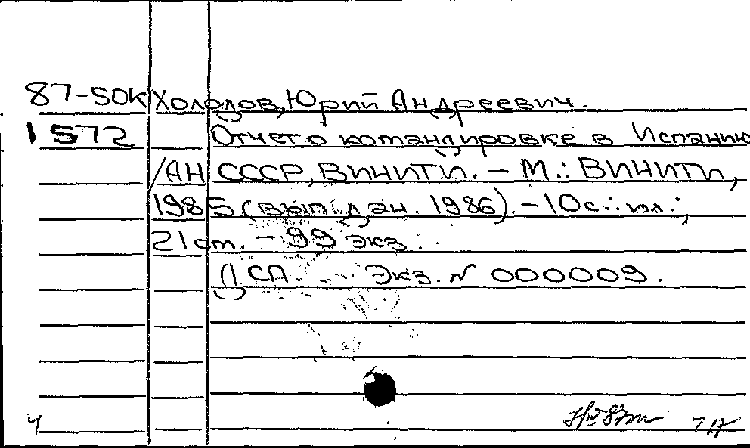 87-50К Холодов, Юрий Андреевич.
1 572 Отчет о командировке в Испанию
/АН СССР, ВИНИТИ. – М.: ВИНИТИ,
1985 (вып. дан. 1986). – 10с.: ил.;
21 см. – 99 экз.
ДСП. Экз. N 000009.
Ч